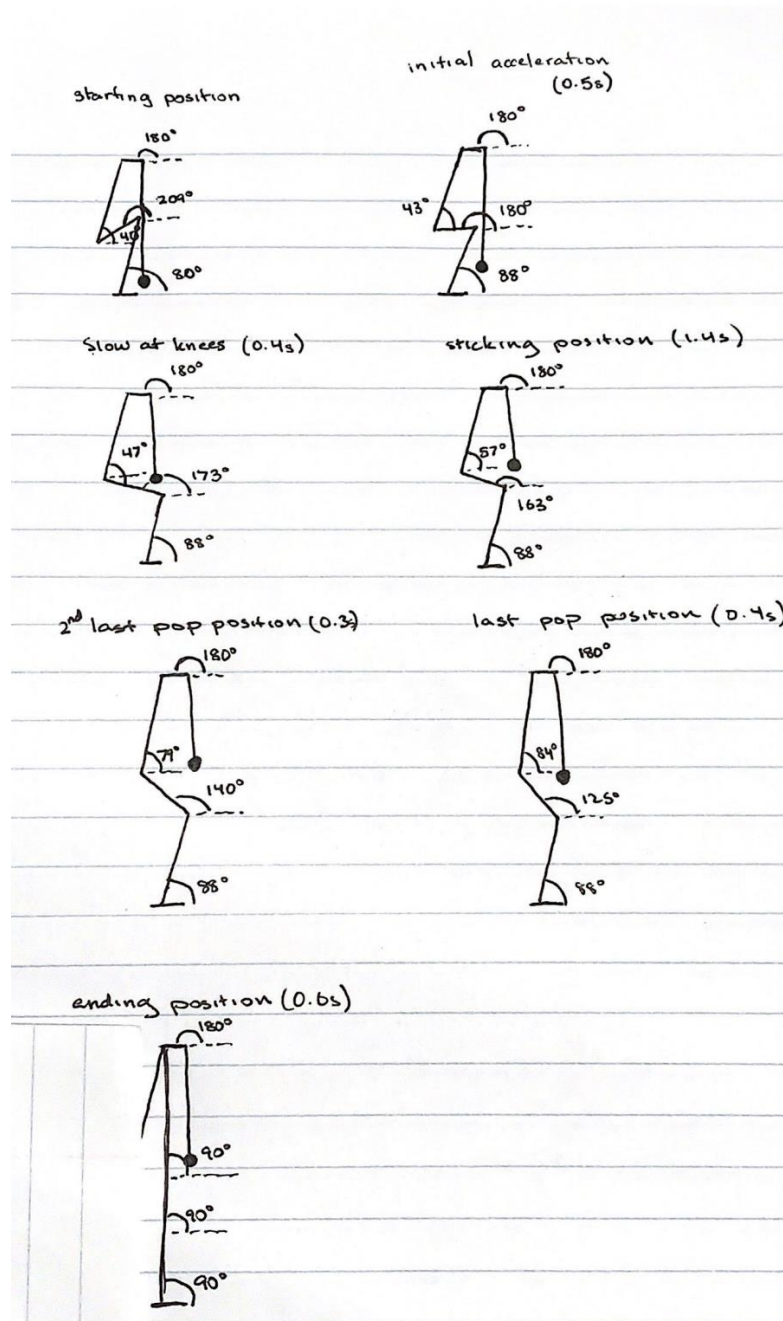 starting position
180°
209°
40°
80°
initial acceleration
(0.5s)
180°
43°
180°
88°
slow at knees (0.4s)
180°
47°
173°
88°
sticking position (1.4s)
180°
57°
163°
88°
2nd last pop position (0.3s)
180°
79°
140°
88°
last pop position (0.4s)
180°
84°
125°
88°
ending position (0.6s)
180°
90°
90°
90°